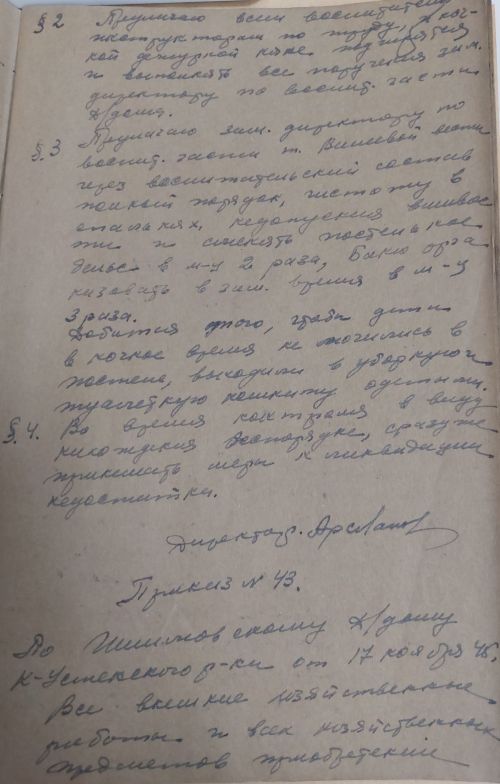 § 2 Предлагаю всем воспитателям,
инструкторам по труду, и ноч-
ной дежурной няне подчиняться
и выполнять все поручения зам.
директору по воспит. части
д/дома.
§. 3 Предлагаю зам. директору по
воспит. части т. вести
через воспитательский состав
полный порядок, чистоту в
спальнях, недопуския вшивос
ти и сменять постельное
белье в м-ц 2 раза, Баню орга
низовать в зим. время в м-ц
3 раза.
Добиться того, чтобы дети
в ночное время не мочились в
постель, выходили в уборную и
туалетную комнату одетыми.
§. 4. Во время контроля в виду
нахождения беспорядке, сразу же
принимать меры к ликвидации
недостатки.
Директор. Арсланов
Приказ № 43.
По д/дому
К-Успекского р-на от 17 ноября 46.
Все внешкие хозяйственные
работы и всех хозяйственных
предметов приобретений